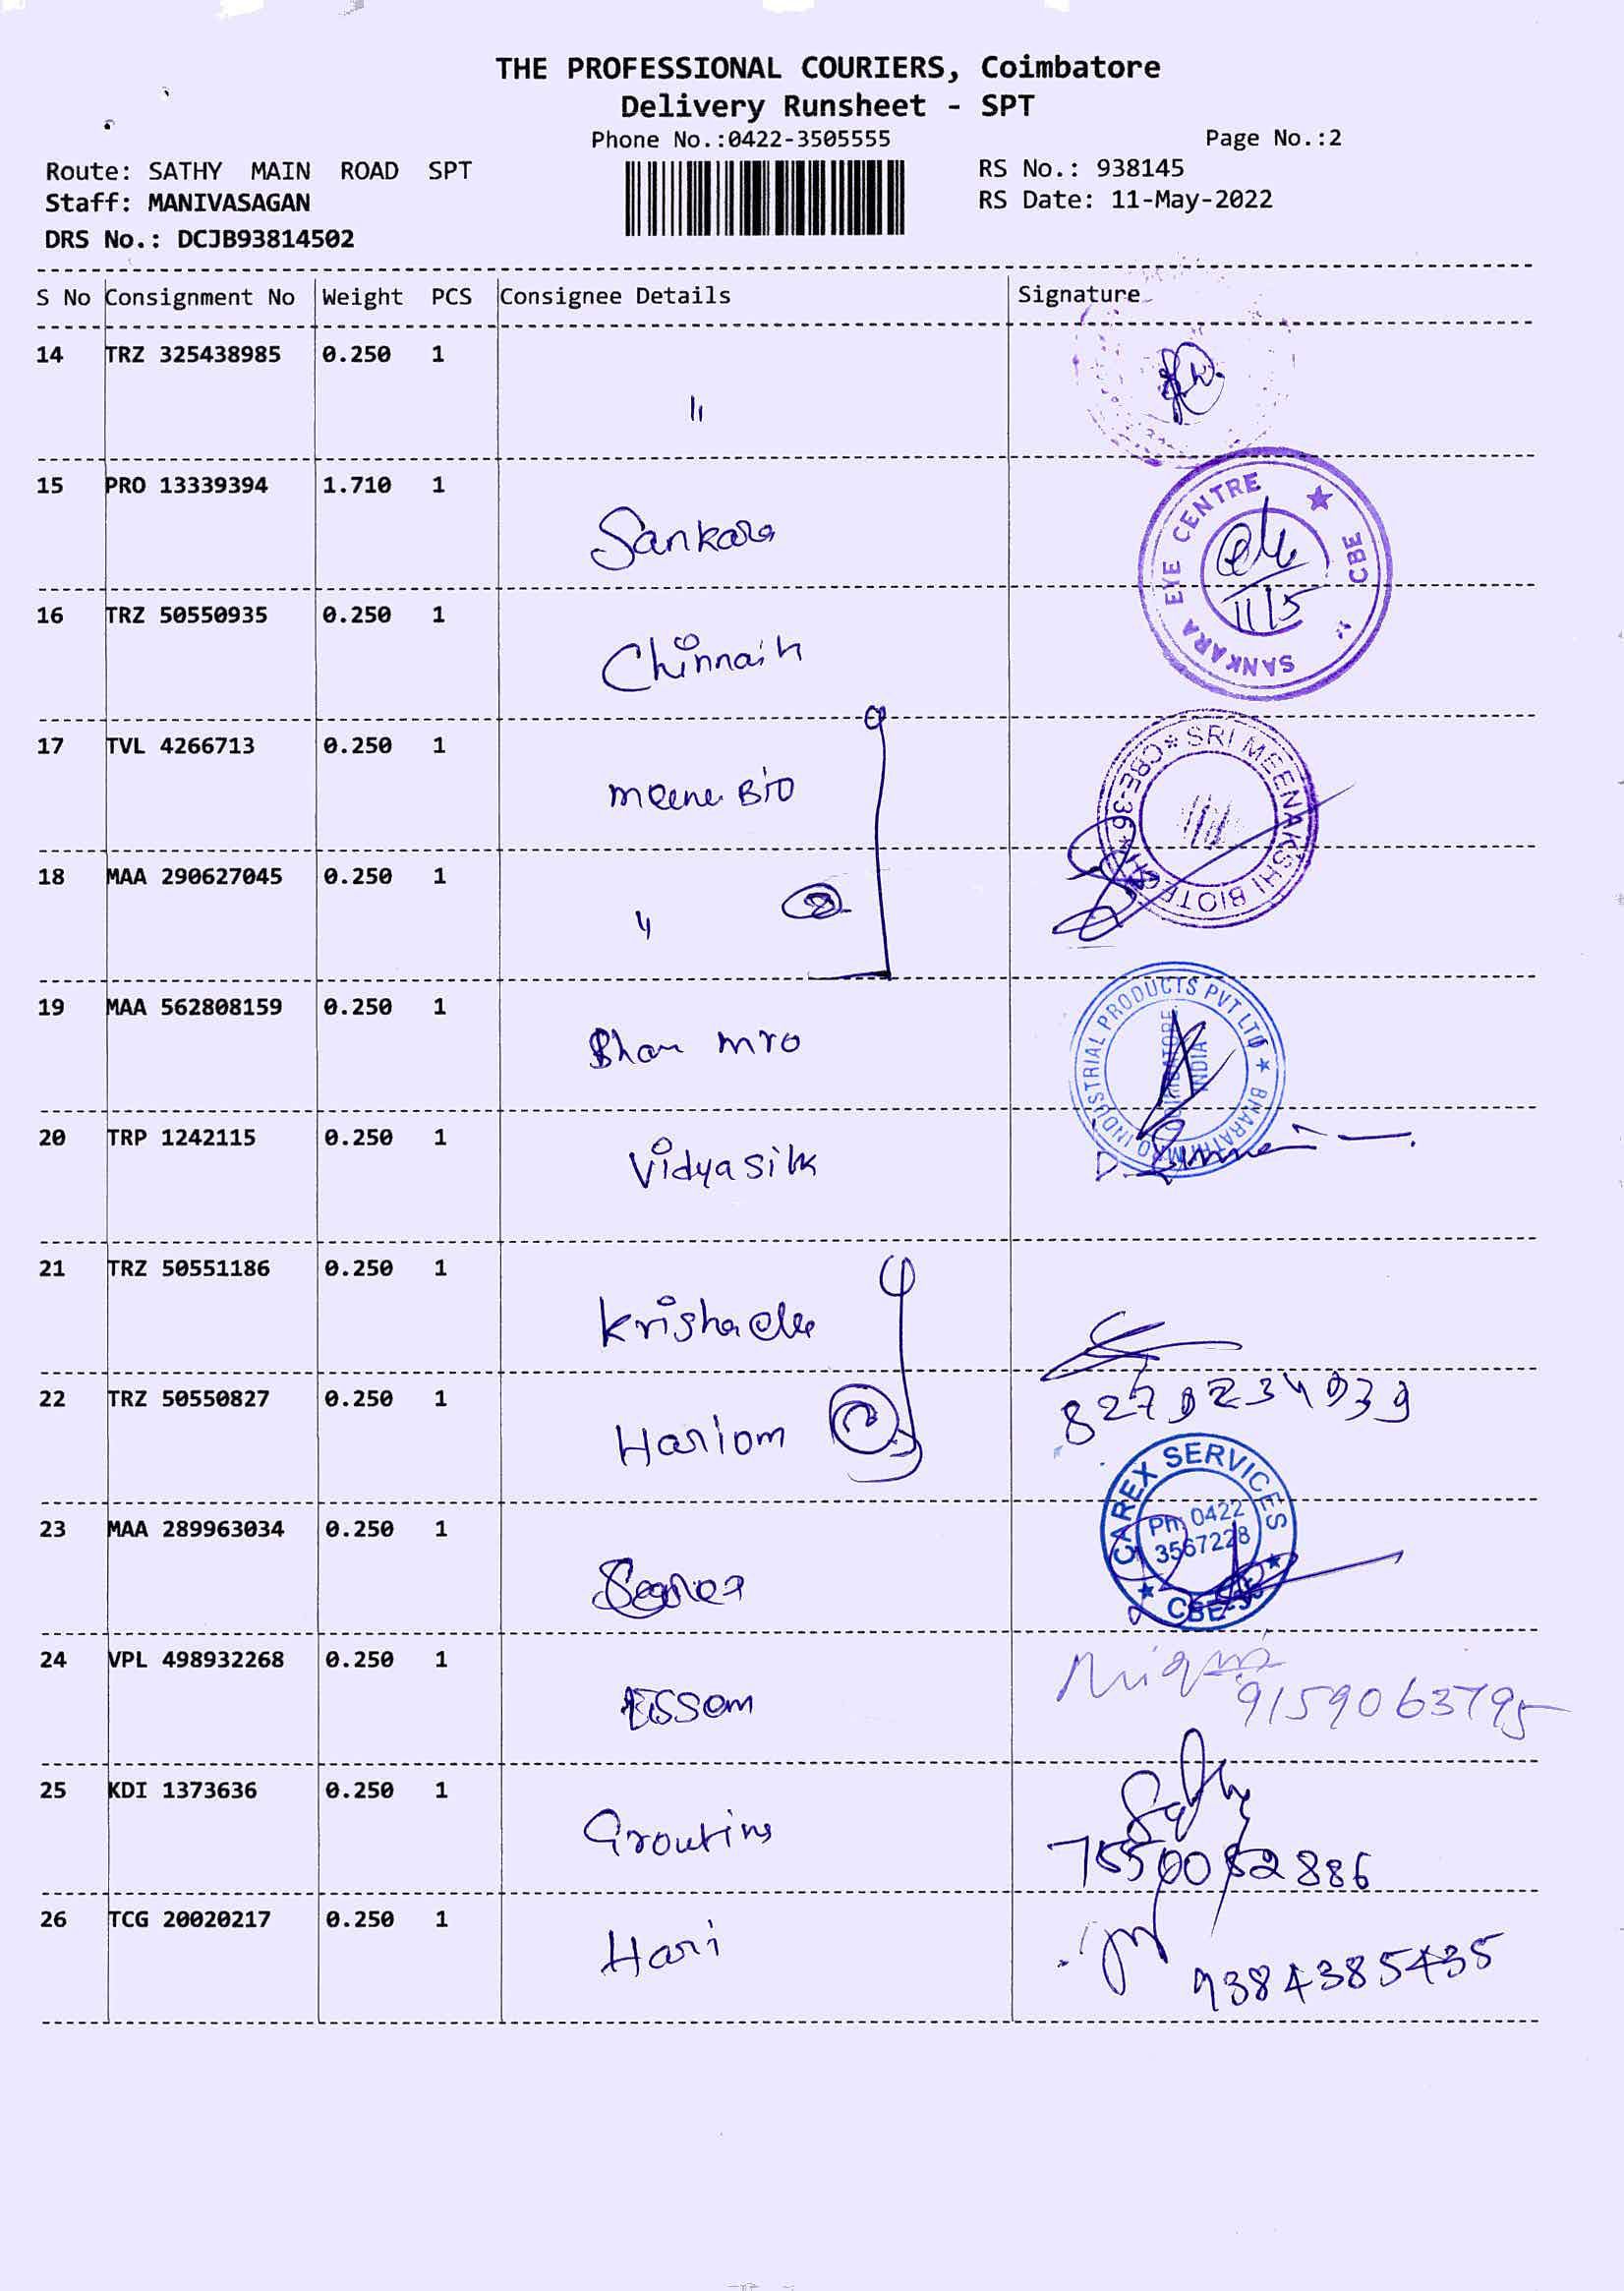 THE PROFESSIONAL COURIERS, Coimbatore
Delivery Runsheet - SPT
Phone No.:0422-3505555
Page No.:2
Route: SATHY MAIN ROAD SPT
RS No.: 938145
Staff: MANIVASAGAN
RS Date: 11-May-2022
DRS No.: DCJB93814502
S No Consignment No Weight PCS Consignee Details Signature
14 TRZ 325438985 0.250 1 "
15 PRO 13339394 1.710 1 Sankara
SANKARA EYE CENTRE ★ CBE
11/5
16 TRZ 50550935 0.250 1 Chinnaih
17 TVL 4266713 0.250 1 meene Bio
SRI MEENAKSHI BIOTECH * CBE-36 *
18 MAA 290627045 0.250 1 " 2
19 MAA 562808159 0.250 1 Bhar mro
BHARATH MRO INDUSTRIAL PRODUCTS PVT LTD ★
COIMBATORE
INDIA
20 TRP 1242115 0.250 1 Vidyasilk
21 TRZ 50551186 0.250 1 Krisha
22 TRZ 50550827 0.250 1 Hariom
23 MAA 289963034 0.250 1
CAREX SERVICES
Ph 0422
3567228
★ CBE-35 ★
24 VPL 498932268 0.250 1 Essem
9159063795
25 KDI 1373636 0.250 1 Groutins
Sathy
7550052886
26 TCG 20020217 0.250 1 Hari
9384385435